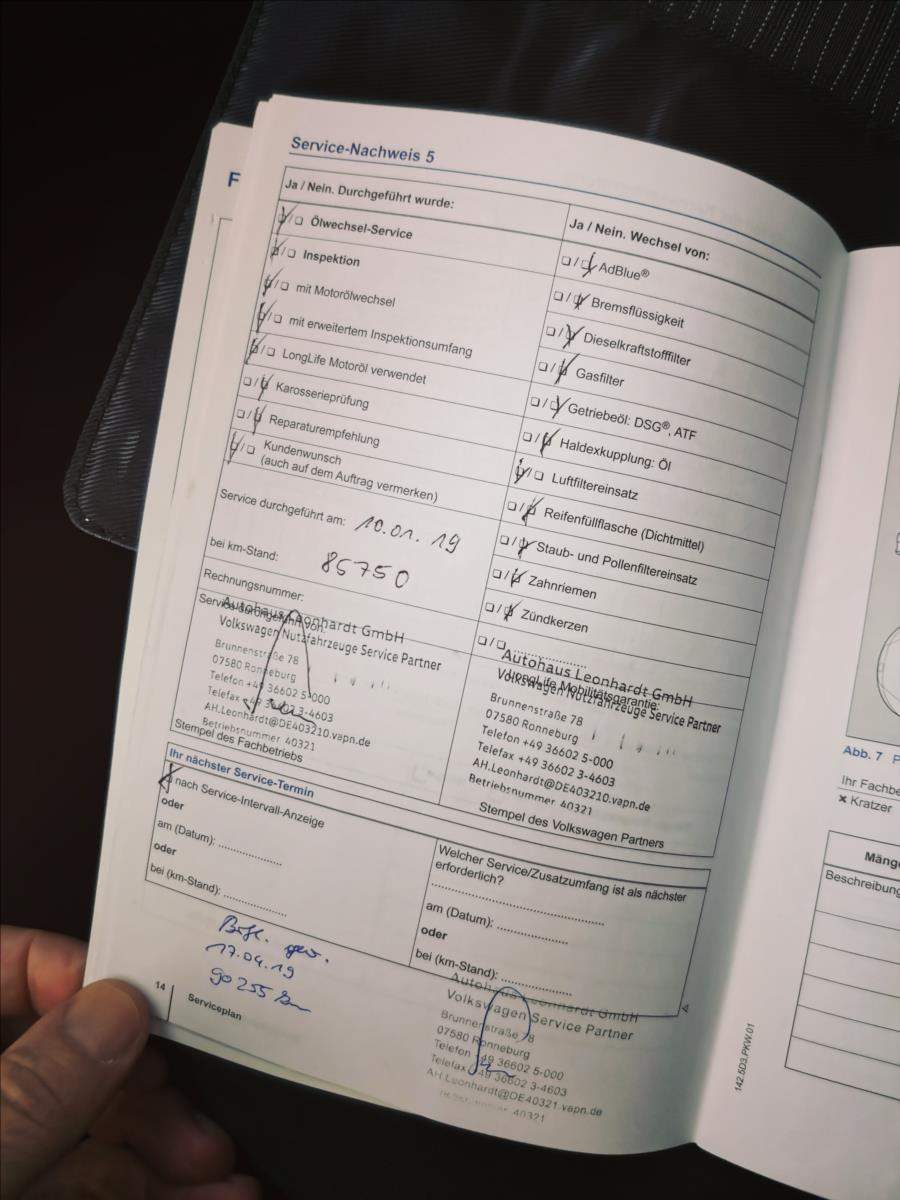 F
Service-Nachweis 5
Ja / Nein. Durchgeführt wurde:
❏/❏ Ölwechsel-Service
❏/❏ Inspektion
❏/❏ mit Motorölwechsel
❏/❏ mit erweitertem Inspektionsumfang
❏/❏ LongLife Motoröl verwendet
❏/❏ Karosserieprüfung
❏/❏ Reparaturempfehlung
❏/❏ Kundenwunsch
(auch auf dem Auftrag vermerken)
Service durchgeführt am: 10.01.19
bei km-Stand: 85750
Rechnungsnummer:
Service durchgeführt von:
Autohaus Leonhardt GmbH
Volkswagen Nutzfahrzeuge Service Partner
Brunnenstraße 78
07580 Ronneburg
Telefon +49 36602 5-000
Telefax +49 36602 3-4603
AH.Leonhardt@DE403210.vapn.de
Betriebsnummer 40321
Stempel des Fachbetriebs
Ja / Nein. Wechsel von:
❏/❏ AdBlue®
❏/❏ Bremsflüssigkeit
❏/❏ Dieselkraftstofffilter
❏/❏ Gasfilter
❏/❏ Getriebeöl: DSG®, ATF
❏/❏ Haldexkupplung: Öl
❏/❏ Luftfiltereinsatz
❏/❏ Reifenfüllflasche (Dichtmittel)
❏/❏ Staub- und Pollenfiltereinsatz
❏/❏ Zahnriemen
❏/❏ Zündkerzen
❏/❏ ....................
LongLife Mobilitätsgarantie:
Autohaus Leonhardt GmbH
Volkswagen Nutzfahrzeuge Service Partner
Brunnenstraße 78
07580 Ronneburg
Telefon +49 36602 5-000
Telefax +49 36602 3-4603
AH.Leonhardt@DE403210.vapn.de
Betriebsnummer 40321
Stempel des Volkswagen Partners
Ihr nächster Service-Termin
❏ nach Service-Intervall-Anzeige
oder
am (Datum): ..................
oder
bei (km-Stand): ..................
Welcher Service/Zusatzumfang ist als nächster
erforderlich?
................................................
am (Datum): ....................
oder
bei (km-Stand): ....................
17.04.19
90255 km
Autohaus Leonhardt GmbH
Volkswagen Service Partner
Brunnenstraße 78
07580 Ronneburg
Telefon +49 36602 5-000
Telefax +49 36602 3-4603
AH.Leonhardt@DE40321.vapn.de
40321
14
Serviceplan
142.5D3.PKW.01
Abb. 7
Ihr Fachbe
× Kratzer
Mänge
Beschreibung